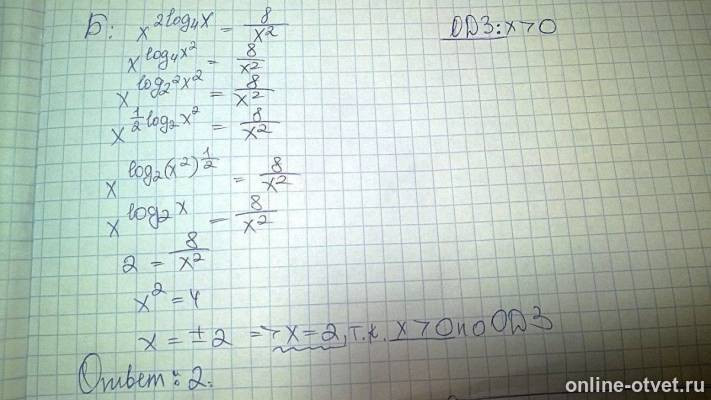 Б: x^{2log_4 x} = 8/x^2   ОДЗ: x>0
x^{log_4 x^2} = 8/x^2
x^{log_{2^2} x^2} = 8/x^2
x^{1/2 log_2 x^2} = 8/x^2
x^{log_2 (x^2)^{1/2}} = 8/x^2
x^{log_2 x} = 8/x^2
2 = 8/x^2
x^2 = 4
x = ±2 => x=2, т.к. x>0 по ОДЗ
Ответ: 2.
online-otvet.ru